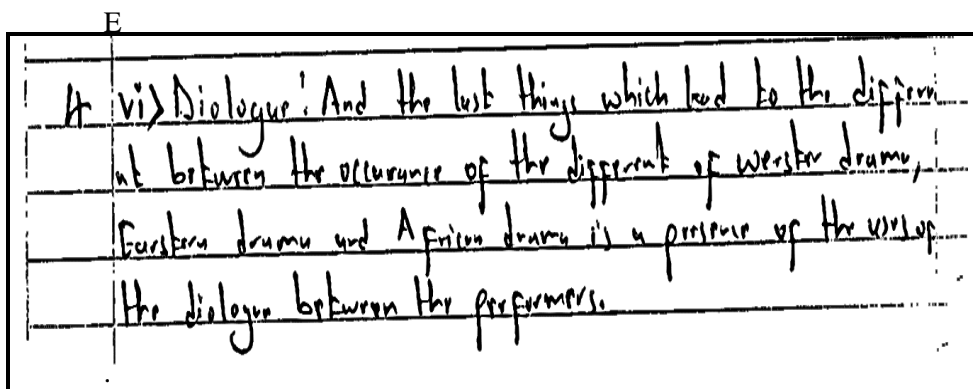 E
4 vi) Diologue: And the last things which lead to the differn
nt between the occurance of the different of werster drama,
Earstern drama and African drama is a presence of the uses of
the diologue between the performers.